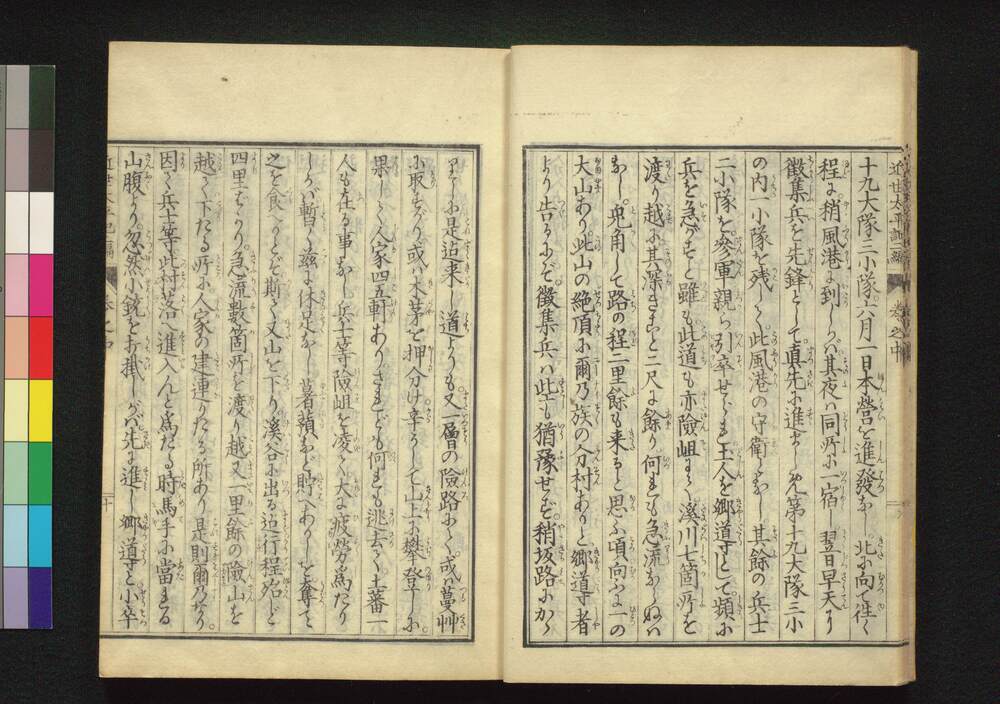 近世太平記二編 巻之中
十九大隊三小隊六月一日本營を進發な 北に向て往く
程に稍風港に到しかバ其夜ハ同所に一宿し翌日早天より
徴集兵を先鋒として真先に進ましめ第十九大隊三小
の内一小隊を残しく此風港の守衛となし其餘の兵士
二小隊を參軍親ら引卒せられ土人を郷導として頻に
兵を急がすと雖も此道も亦險岨にて溪川七箇所を
渡り越に其深きこと二尺に餘り何れも急流ならぬハ
なし兎角して路の程二里餘も来ると思ふ頃向ふに一の
大山あり此山の絶頂に爾乃族の分村ありと郷導者
より告るにぞ徴集兵ハ此にも猶豫せず稍坂路にかゝ
りしに是迠来し道よりも又一層の險路にて或ハ蔓艸
に取すがり或ハ木茅を押分け辛うして山上に攀登りしに
果しく人家四五軒ありされども何れも逃去て土蕃一
人も在る事なし兵士等險岨を凌て大に疲勞為たり
しかバ暫く茲に休足なし薯蕷など貯へありしを奪て
之を食ひなどし斯て又山を下り溪谷に出る迠行程殆ど
四里ばかり急流数箇所を渡り越又一里餘の險山を
越て下たる所に人家の建連りたる所あり是則爾乃なり
因て兵士等此村落へ進入んと為たる時馬手に當れる
山腹より忽然小銃を打掛 バ先に進し郷導と小卒